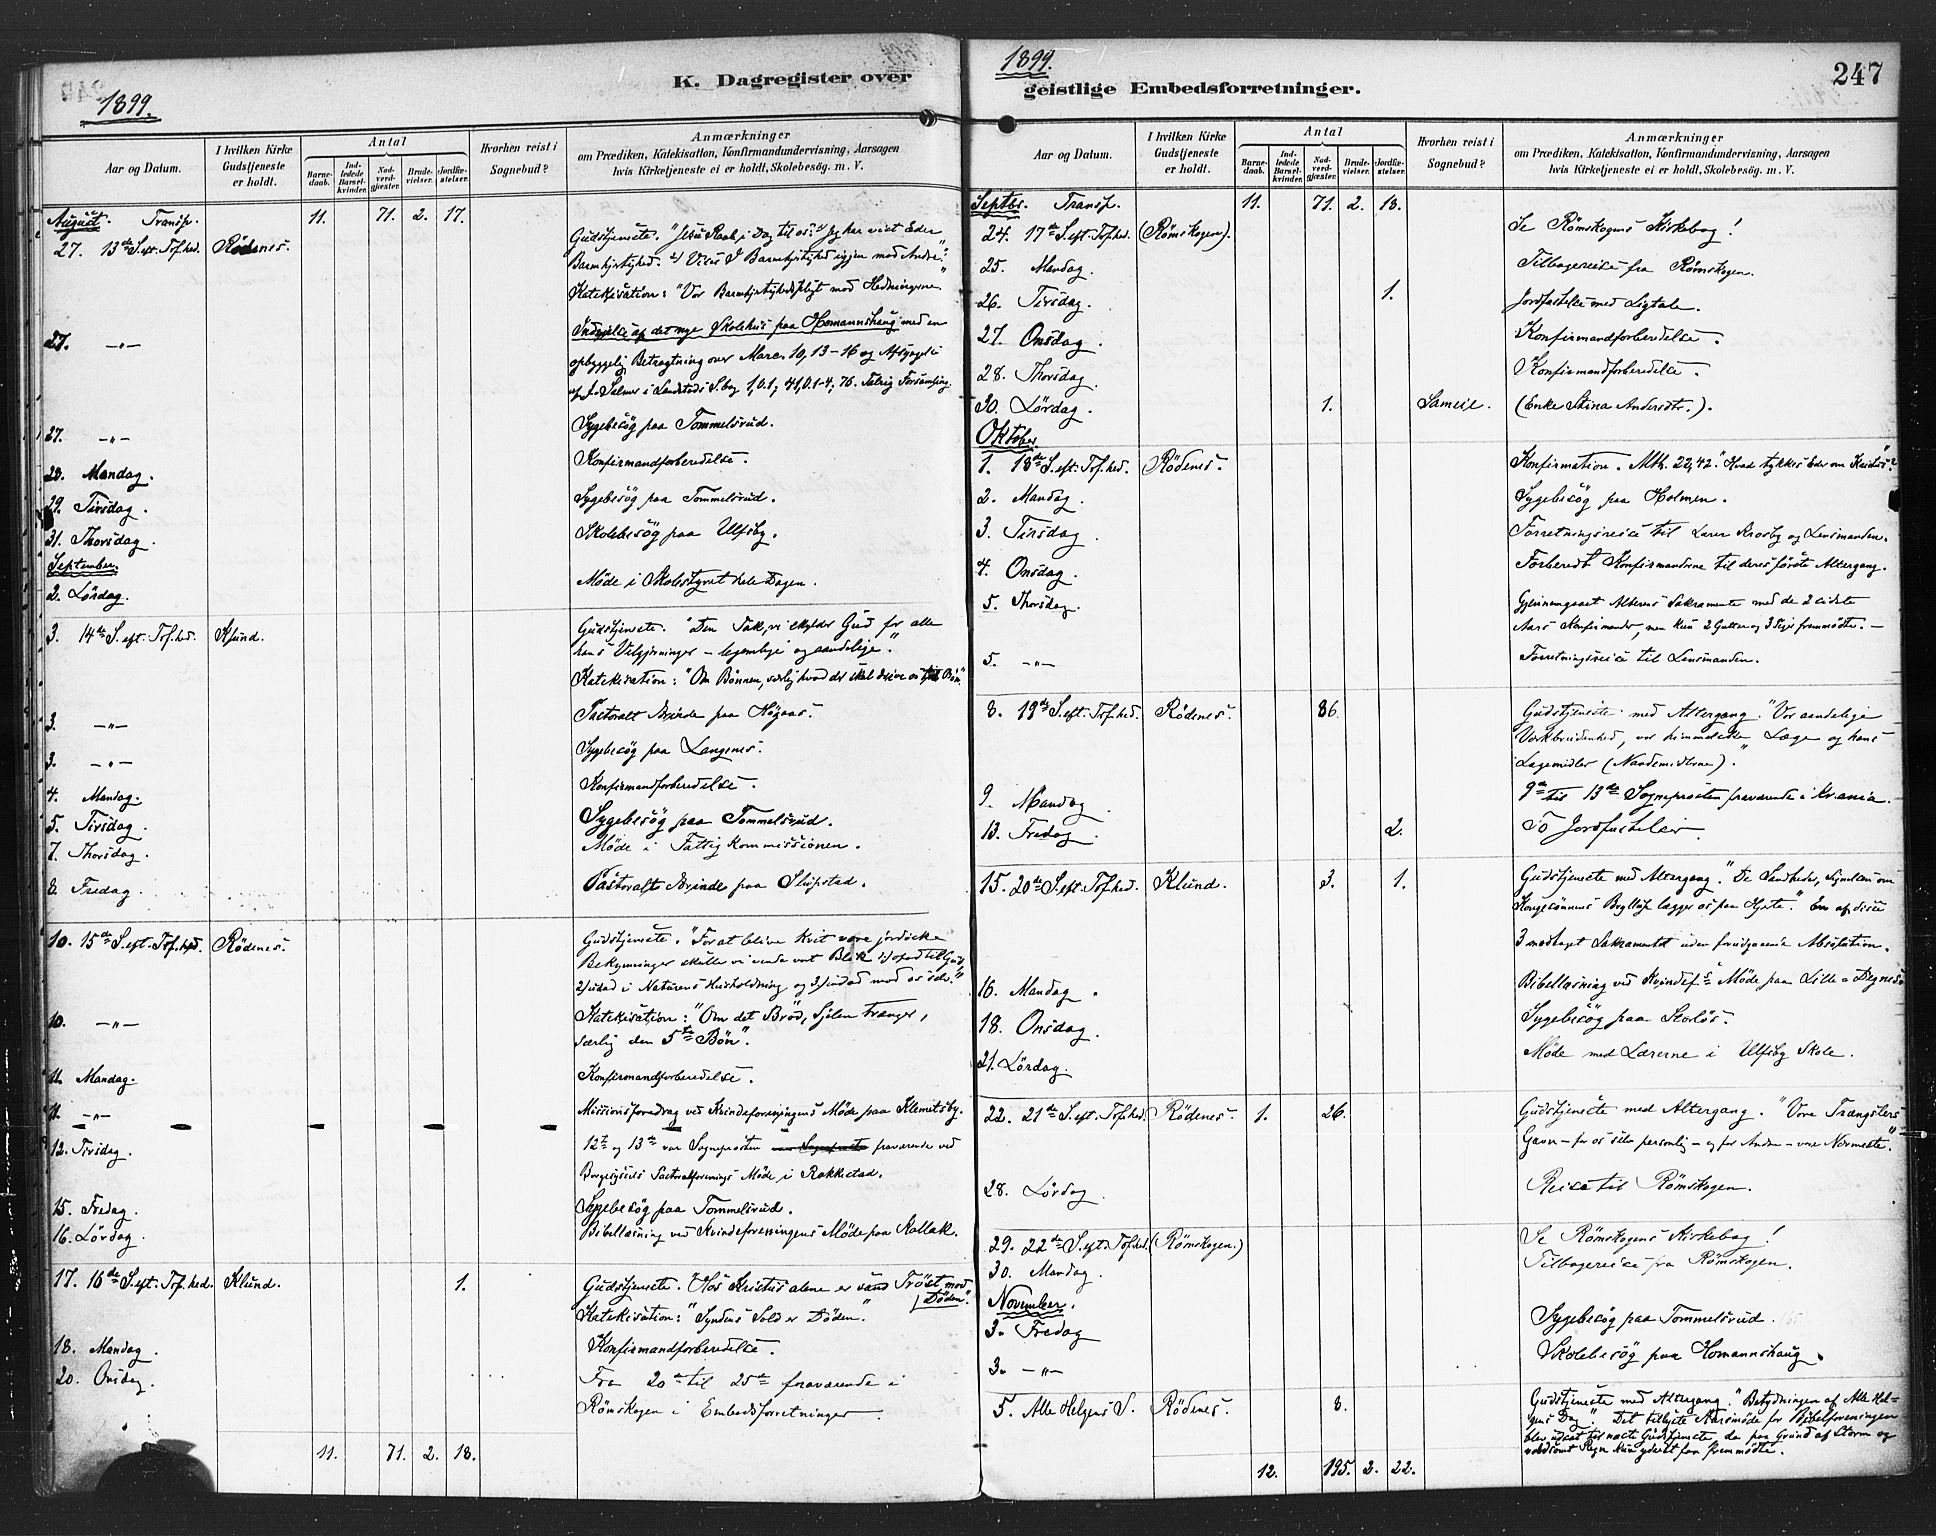 1899.
K. Dagregister over
Aar og Datum.
I hvilken Kirke Gudstjeneste er holdt.
Antal
Barnedaab.
Indledede Barselkvinder.
Nadverdgjester.
Brudevielser.
Jordfæstelser.
Hvorhen reist i Sognebud?
Anmærkninger
om Prædiken, Katekisation, Konfirmandundervisning, Aarsagen
hvis Kirketjeneste ei er holdt, Skolebesög. m. V.
August. Transp. 11. 71. 2. 17.
27. 13de S. eft. Tof.hed. Rödenes. Gudstjeneste. "Jesu Raab i Dag til os: 1) Jeg har vist Eder
Barmhjertighed. 2) Viis I Barmhjertighed igjen mod Andre."
Katekisation: "Vor Barmhjertighedspligt mod Hedningerne."
27. -"- Indvielse af det nye Skolehus paa Homannshaug med en
opbyggelig Betragtning over Marc. 10, 13-16 og Afsyngelse
af Salmer i Landstads S.bog Talrig Forsamling.
27. -"- Sygebesög paa Tommelsrud.
28. Mandag. Konfirmandforberedelse.
29. Tirsdag. Sygebesög paa Tommelsrud.
31. Thorsdag. Skolebesög paa Ulfsby.
September.
2. Lördag. Möde i Skolestyret hele Dagen.
3. 14de S. eft. Tof.hed. Klund. Gudstjeneste. "Den Tak, vi skylder Gud for alle
hans Velgjerninger - legemlige og aandelige."
Katekisation: "Om Bönnen, særlig hvad der skal drive os til Bön."
3. -"- Pastoralt Ærinde paa Högaas.
3. -"- Sygebesög paa Langenes.
4. Mandag. Konfirmandforberedelse.
5. Tirsdag. Sygebesög paa Tommelsrud.
7. Thorsdag. Möde i Fattigkommissionen.
8. Fredag. Pastoralt Ærinde paa Slupstad.
10. 15de S. eft. Tof.hed. Rödenes. Gudstjeneste. "For at blive kvit vore jordiske
Bekymringer skulle vi vende vort Blik 1) opad til Gud,
2) udad i Naturens Husholdning og 3) indad mod os selv."
10. -"- Katekisation: "Om det Bröd, Sjelen trænger,
særlig den 5te Bön".
11. Mandag. Konfirmandforberedelse.
11. -"- Missionsforedrag ved Kvindeforeningens Möde paa Klemetsby.
12. Tirsdag. 12te og 13de var Sognepresten fraværende ved
Borgesyssels Pastoralforenings Möde i Rakkestad.
15. Fredag. Sygebesög paa Tommelsrud.
16. Lördag. Bibellæsning ved Kvindeforeningens Möde paa Kollak.
17. 16de S. eft. Tof.hed. Klund. 1. Gudstjeneste. "Hos Kristus alene er sand Tröst mod
Döden."
Katekisation: "Syndens Sold er Döden."
18. Mandag. Konfirmandforberedelse.
20. Onsdag. Fra 20de til 25de fraværende i
Römskogen i Embedsforretninger.
11. 71. 2. 18.
1899.
geistlige Embedsforretninger.
247
Aar og Datum.
I hvilken Kirke Gudstjeneste er holdt.
Antal
Barnedaab.
Indledede Barselkvinder.
Nadverdgjester.
Brudevielser.
Jordfæstelser.
Hvorhen reist i Sognebud?
Anmærkninger
om Prædiken, Katekisation, Konfirmandundervisning, Aarsagen
hvis Kirketjeneste ei er holdt, Skolebesög. m. V.
Septbr. Transp. 11. 71. 2. 18.
24. 17de S. eft. Tof.hed. (Römskogen). Se Römskogens Kirkebog!
25. Mandag. Tilbagereise fra Römskogen.
26. Tirsdag. 1. Jordfæstelse med Ligtale.
27. Onsdag. Konfirmandforberedelse.
28. Thorsdag. Konfirmandforberedelse.
30. Lördag. 1. Sameie. (Enke Stina Andersdtr.).
Oktober.
1. 18de S. eft. Tof.hed. Rödenes. Konfirmation. Mth. 22,42. "Hvad tykkes Eder om Kristus"?
2. Mandag. Sygebesög paa Holmen.
3. Tirsdag. Forretningsreise til Lærer Krosby og Lensmanden.
4. Onsdag. Forberedt Konfirmandene til deres förste Altergang.
5. Thorsdag. Gjennemgaaet Alterens Sakramente med de 2 sidste
Aars Konfirmander, men kun 2 Gutter og 3 Piger fremmödte. -
5. -"- Forretningsreise til Lensmanden.
8. 19de S. eft. Tof.hed. Rödenes. 86. Gudstjeneste med Altergang. "Vor aandelige
Værkbrudenhed, vor himmelske Læge og hans
Lægemidler (Naademidlerne)."
9. Mandag. 9de til 13de Sognepresten fraværende i Kr.ania.
13. Fredag. 2. To Jordfæstelser.
15. 20de S. eft. Tof.hed. Klund. 3. 1. Gudstjeneste med Altergang. "De Sandheder, Lignelsen om
Kongesönnens Bryllup lægger os paa Hjerte". En af disse
3 modtoget Sakramentet uden forudgaaende Absolution.
16. Mandag. Bibellæsning ved Kvindef.s Möde paa Lille-Degnes.
18. Onsdag. Sygebesög paa Skolös.
21. Lördag. Möde med Lærerne i Ulfsby Skole.
22. 21de S. eft. Tof.hed. Rödenes. 1. 26. Gudstjeneste med Altergang. "Vore Trængslers
Gavn - for os selv personlig - og for Andre - vore Nærmeste."
28. Lördag. Reise til Römskogen.
29. 22de S. eft. Tof.hed. (Römskogen.) Se Römskogens Kirkebog!
30. Mandag. Tilbagereise fra Römskogen.
November.
3. Fredag Sygebesög paa Tommelsrud.
3. -"- Skolebesög paa Homannshaug.
5. Alle Helgens S. Rödenes. 8. Gudstjeneste med Altergang. "Betydningen af Alle Helgens
Dag". Det tillyste Aarsmöde for Bibelforeningen
blev udsat til næste Gudstjeneste, da paa Grund af Storm og
voldsomt Regn kun ydrest faa fremmödte.
12. 195. 2. 22.